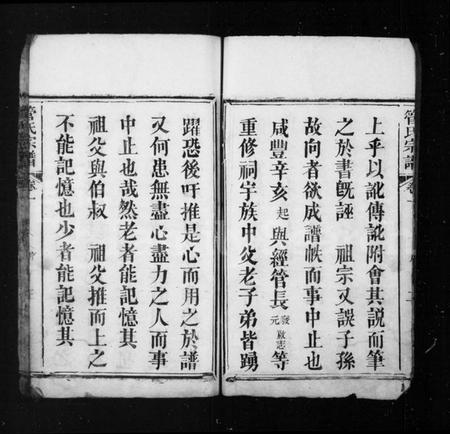 管氏宗譜
卷一
上乎以訛傳訛附會其說而筆
之於書既誣 祖宗又誤子孫
故向者欲成譜帙而事中止也
咸豐辛亥起與經管長發元啟志等
重修祠宇族中父老子弟皆踴
躍恐後吁推是心而用之於譜
又何患無盡心盡力之人而事
中止也哉然老者能記憶其
祖父與伯叔 祖父推而上之
不能記憶也少者能記憶其
管氏宗譜
卷一